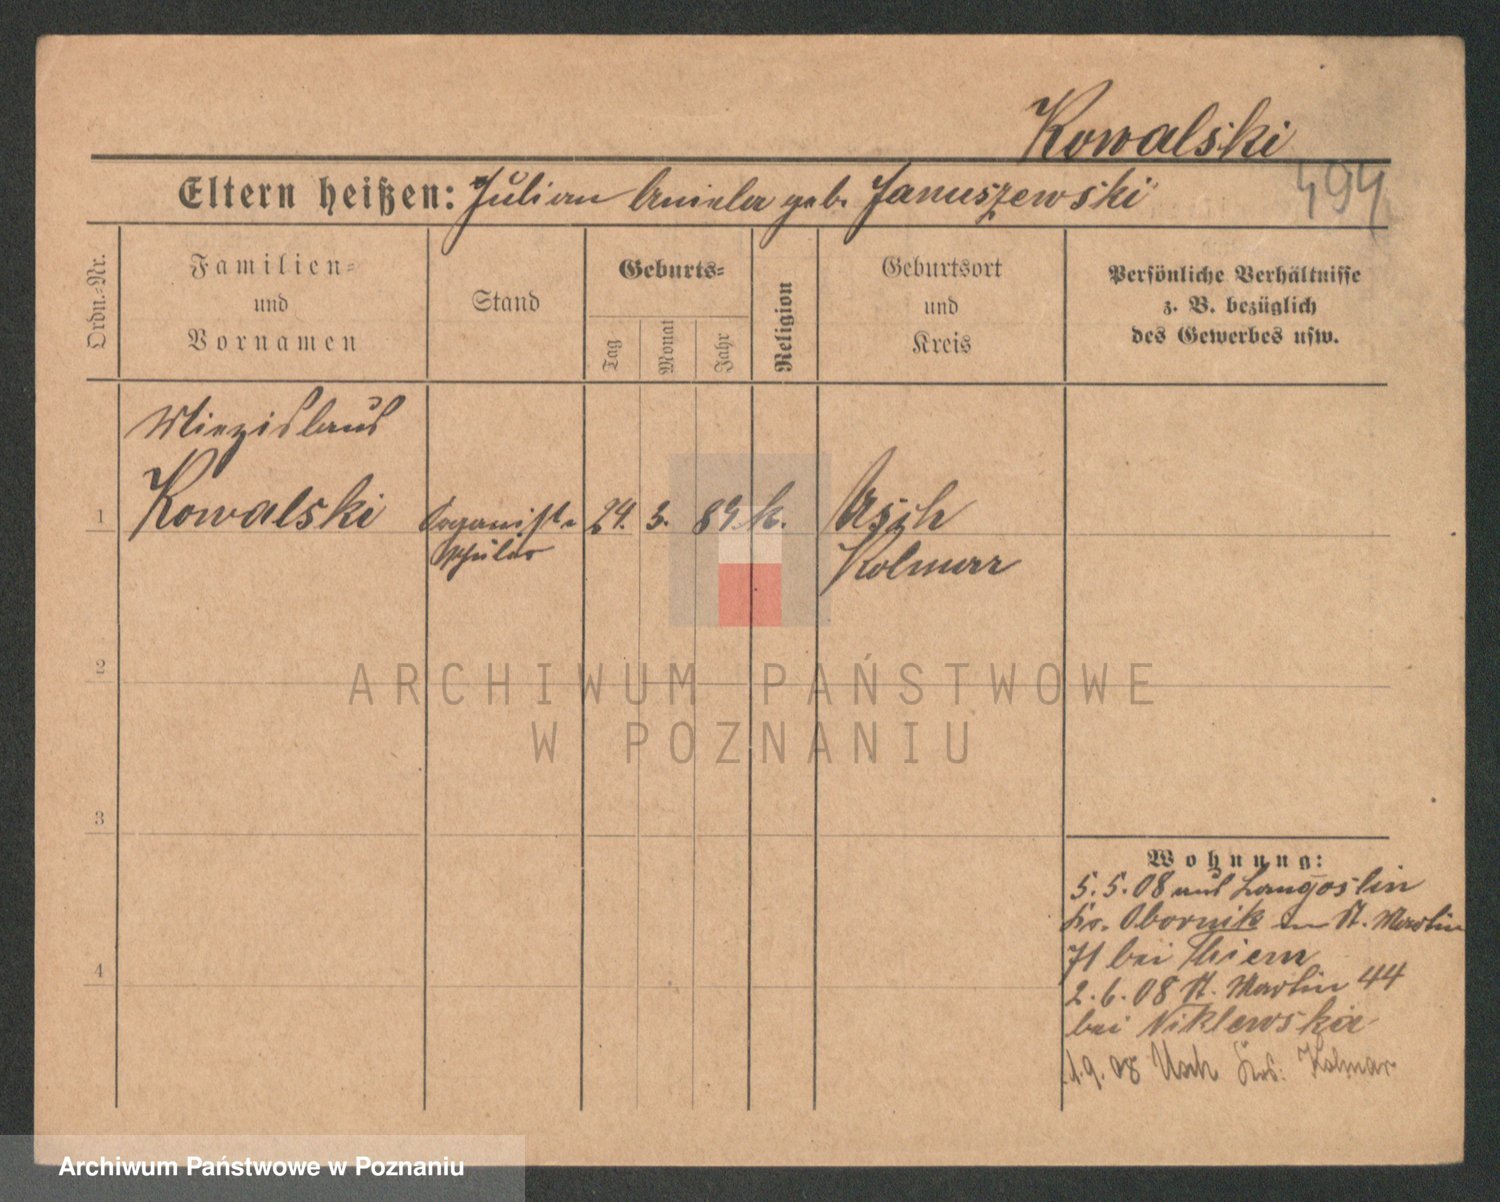 Kowalski
Eltern heißen: Julian Aniela geb. Januszewski
494
Ordn.-Nr.
Familien-
und
Vornamen
Stand
Geburts-
Tag
Monat
Jahr
Religion
Geburtsort
und
Kreis
Persönliche Verhältnisse
z. B. bezüglich
des Gewerbes usw.
Miezislaus
1 Kowalski Organist- 24. 3. 89 k. Usch
schüler Kolmar
2
3
4
ARCHIWUM PAŃSTWOWE
W POZNANIU
Wohnung:
5.5.08 aus Langoslin
Kr. Obornik St. Martin
71 bei Thiem
2.6.08 St. Martin 44
bei Niklewska
1.9.08 Usch Krs. Kolmar
Archiwum Państwowe w Poznaniu